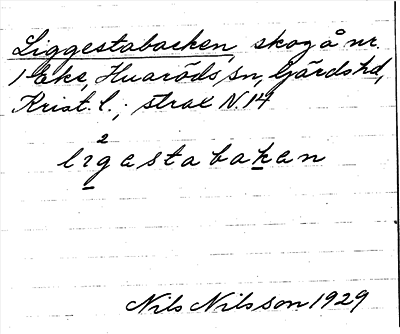 Liggestabacken, skog å nr.
1 Eke, Huaröds sn, Gärds hd,
Krist. l.; strax N. 14
2
ligastabakan
Nils Nilsson 1929